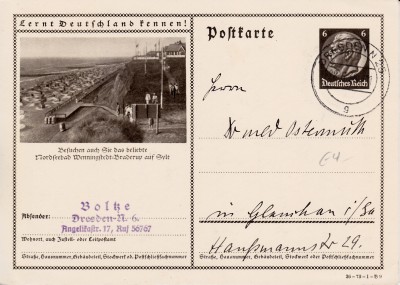 Lernt Deutschland kennen!
Besuchen auch Sie das beliebte
Nordseebad Wenningstedt-Braderup auf Sylt
Boltze
Absender:
Dresden-N. 6.
Angelikastr. 17, Ruf 56967
Wohnort, auch Zustell- oder Leitpostamt
Straße, Hausnummer, Gebäudeteil, Stockwerk od. Postschließfachnummer
Postkarte
6 6
Deutsches Reich
g
Herrn
Dr med Ostermuth
€4.-
in Glauchau i/Sa
Haußmannstr 29.
Straße, Hausnummer, Gebäudeteil, Stockwerk od. Postschließfachnummer